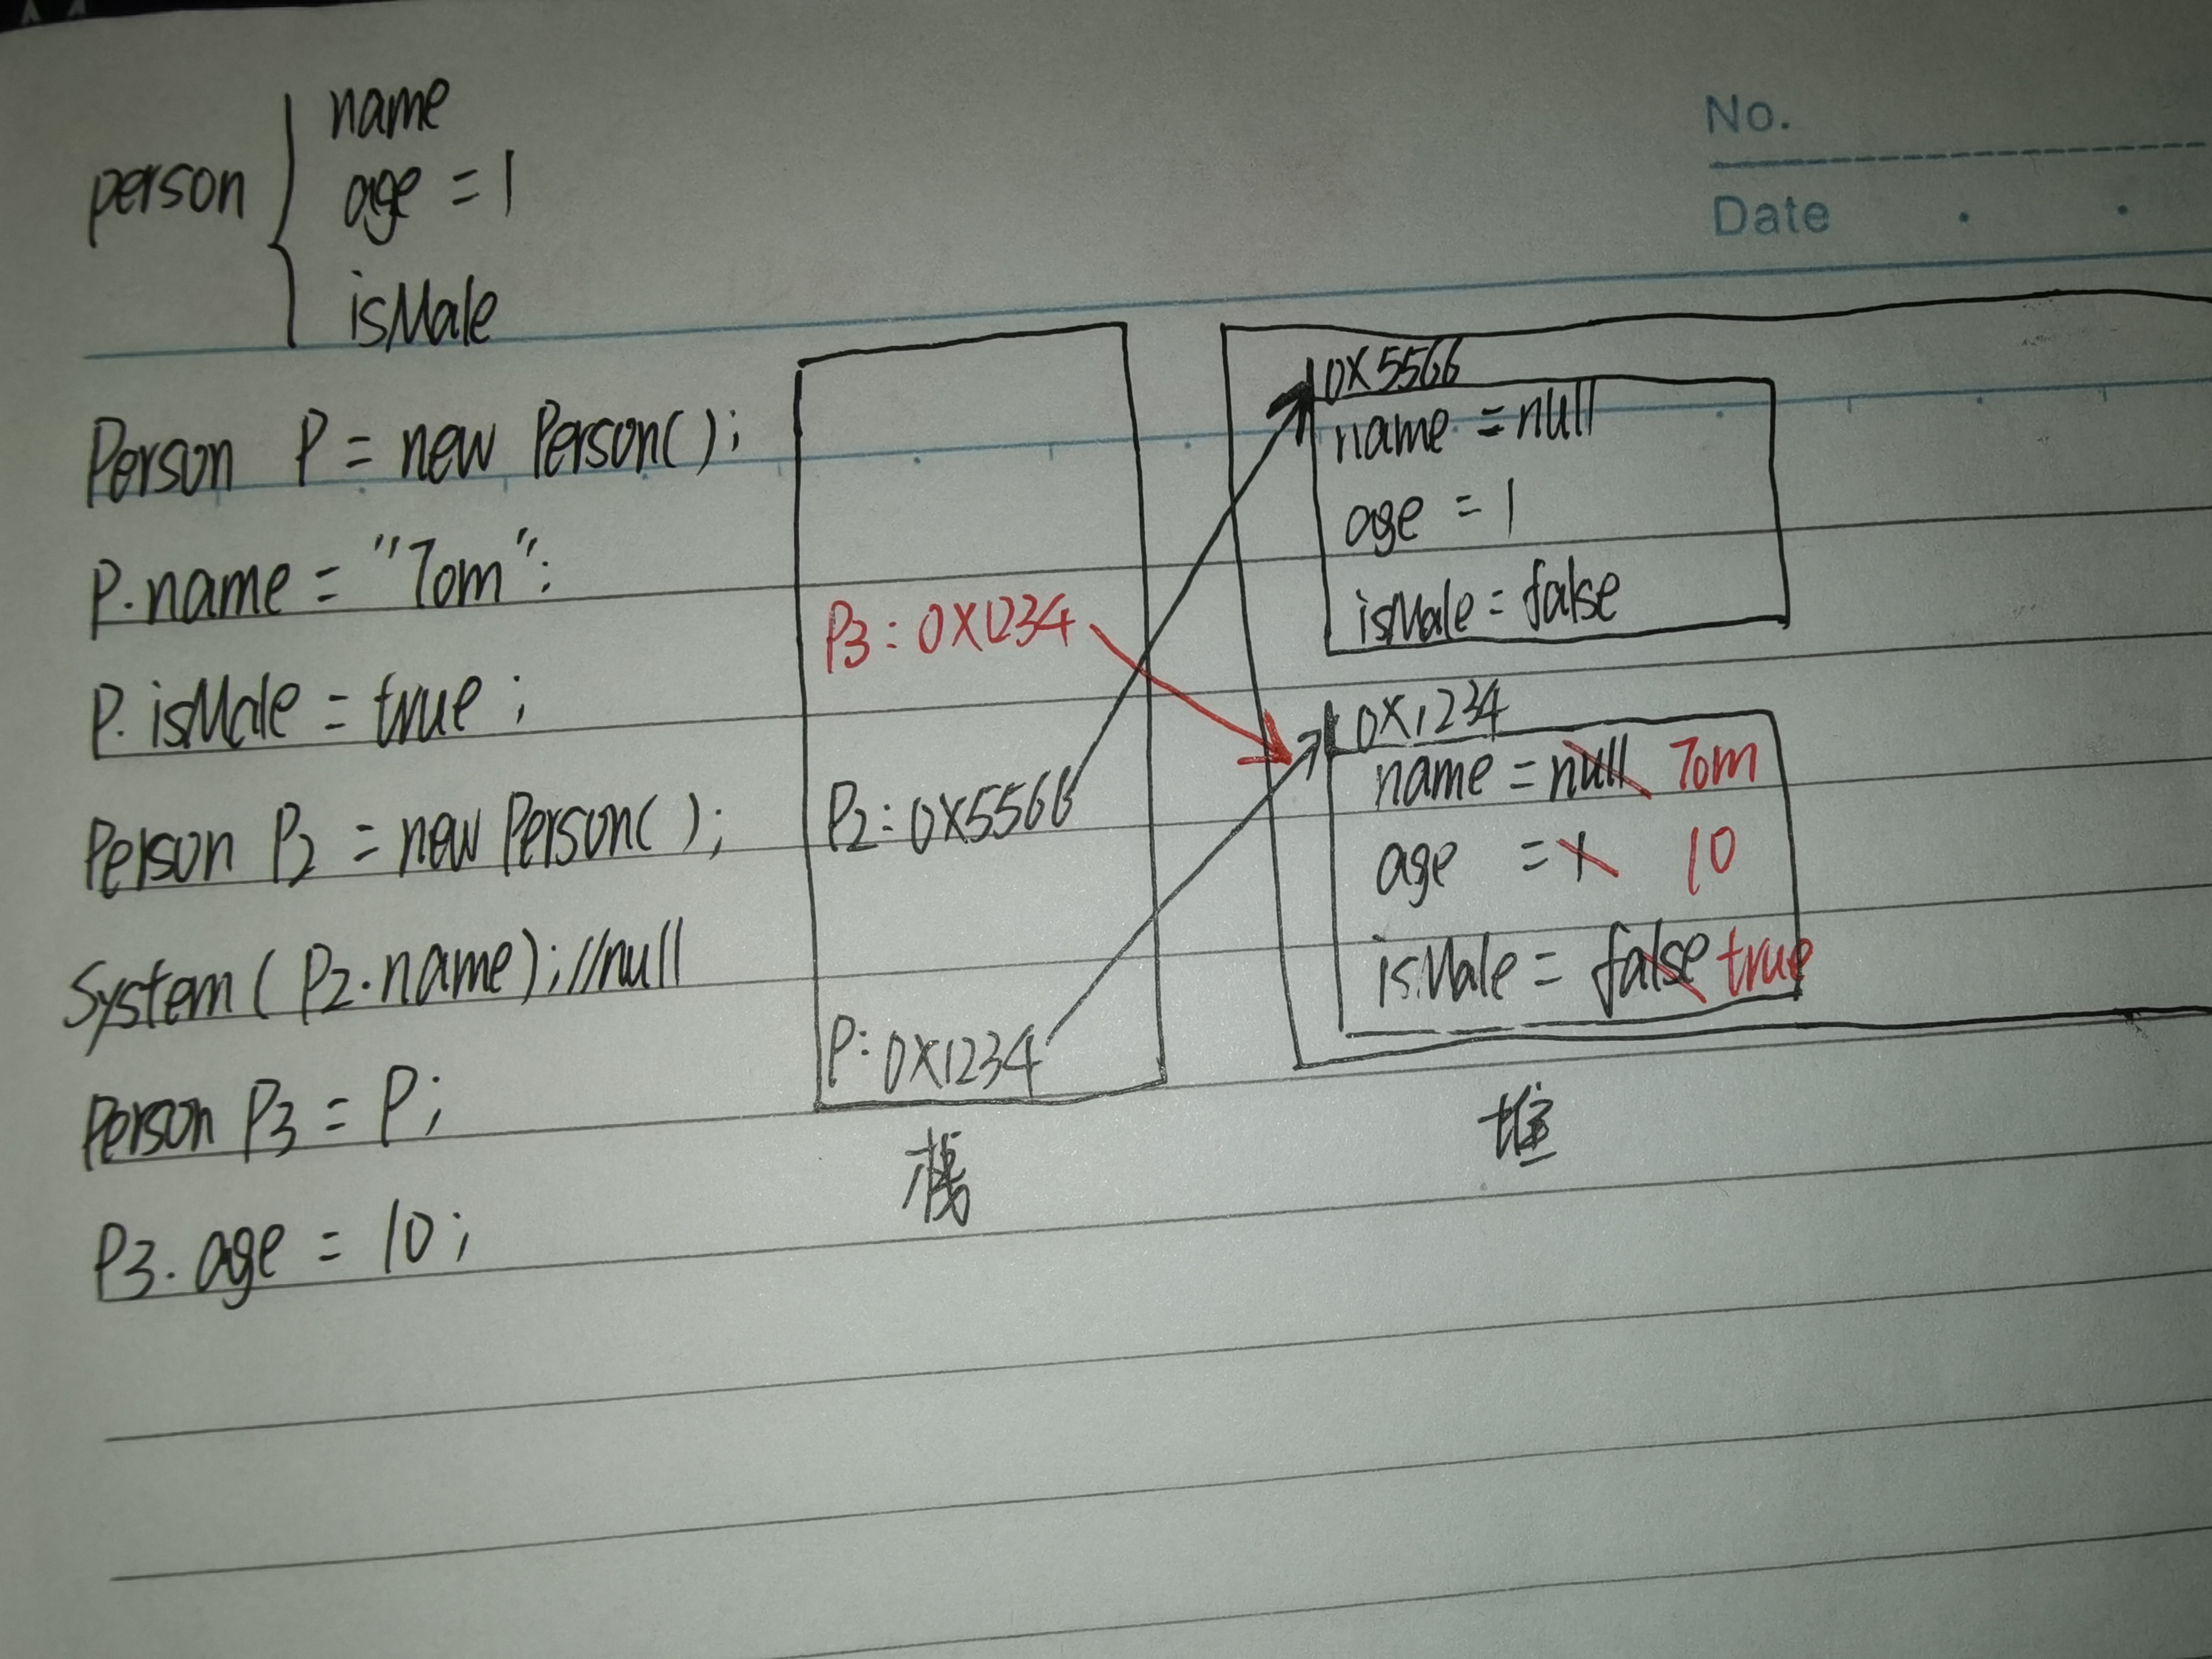 name
person
age = 1
isMale
No.
Date
Person P = new Person();
P.name = "Tom":
P.isMale = true;
Person P2 = new Person();
System(P2.name);//null
Person P3 = P;
P3.age = 10;
P3: 0X1234
P2: 0X5566
P: 0X1234
栈
0X5566
name = null
age = 1
isMale = false
0X1234
name = null Tom
age = 1 10
isMale = false true
堆